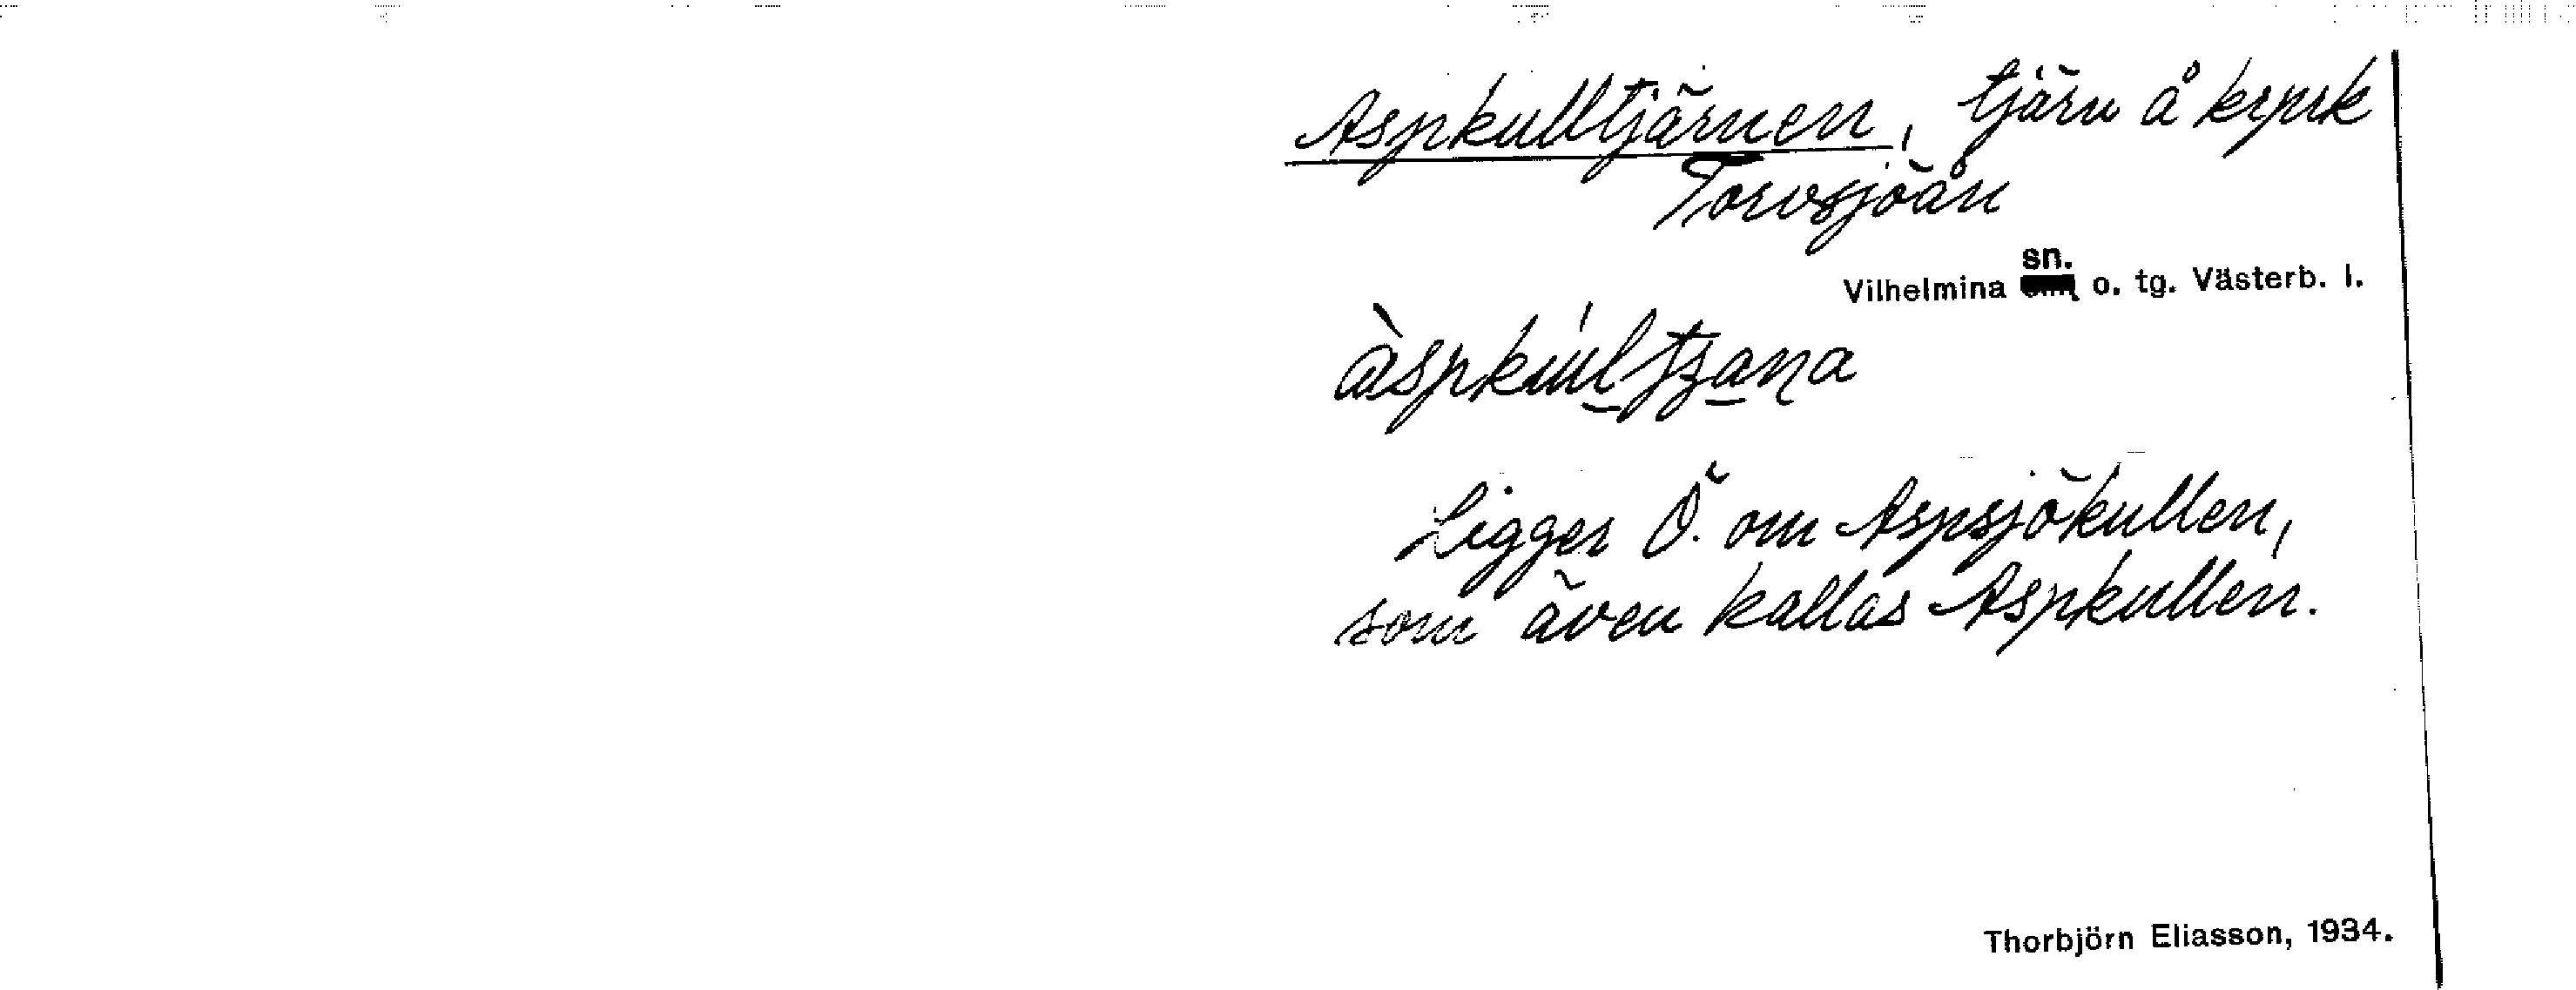 Aspkulltjärnen, tjärn å krprk
Torvsjöån
Vilhelmina sn. o. tg. Västerb. l.
Ligger Ö. om Aspsjökullen,
som även kallas Aspkullen.
Thorbjörn Eliasson, 1934.